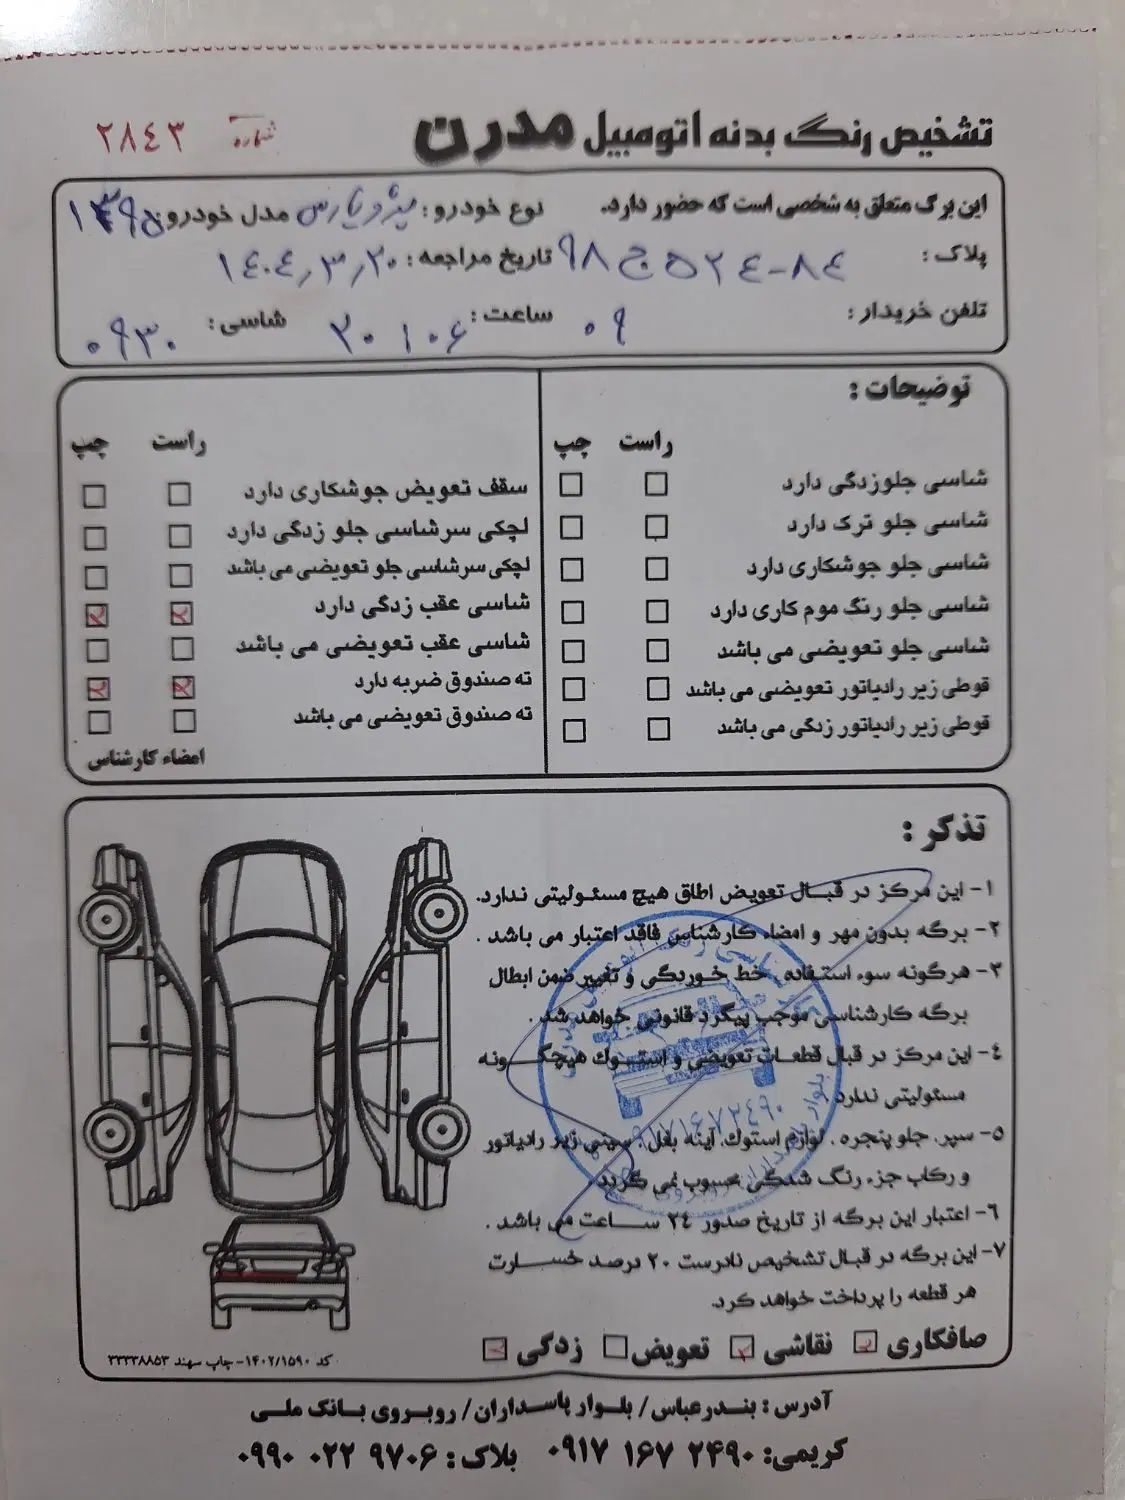 تشخیص رنگ بدنه اتومبیل مدرن
شماره ۲۸۴۳
این برگ متعلق به شخصی است که حضور دارد. نوع خودرو: پژو پارس مدل خودرو: ۱۳۹۵
پلاک: ۸۴-۵۲۴ج۹۸ تاریخ مراجعه: ۱۴۰۴٫۳٫۲۰
تلفن خریدار: ۰۹ ساعت: ۲۰۱۰۶ شاسی: ۰۹۳۰
توضیحات:
راست چپ
شاسی جلو زدگی دارد
شاسی جلو ترک دارد
شاسی جلو جوشکاری دارد
شاسی جلو رنگ موم کاری دارد
شاسی جلو تعویضی می باشد
قوطی زیر رادیاتور تعویضی می باشد
قوطی زیر رادیاتور زدگی می باشد
راست چپ
سقف تعویض جوشکاری دارد
لچکی سرشاسی جلو زدگی دارد
لچکی سرشاسی جلو تعویضی می باشد
شاسی عقب زدگی دارد
شاسی عقب تعویضی می باشد
ته صندوق ضربه دارد
ته صندوق تعویضی می باشد
امضاء کارشناس
تذکر:
۱- این مرکز در قبال تعویض اطاق هیچ مسئولیتی ندارد.
۲- برگه بدون مهر و امضاء کارشناس فاقد اعتبار می باشد.
۳- هرگونه سوء استفاده، خط خوردگی و تغییر ضمن ابطال
برگه کارشناسی موجب پیگرد قانونی خواهد شد.
٤- این مرکز در قبال قطعات تعویضی و استوک هیچگونه
مسئولیتی ندارد
۵- سپر، جلو پنجره، لوازم استوک، آینه بغل، سینی زیر رادیاتور
و رکاب جزء رنگ شدگی محسوب نمی گردد.
۶- اعتبار این برگه از تاریخ صدور ۲٤ ساعت می باشد.
۷- این برگه در قبال تشخیص نادرست ۲۰ درصد خسارت
هر قطعه را پرداخت خواهد کرد.
صافکاری نقاشی تعویض زدگی
کد ۱۴۰۲/۱۵۹۰-چاپ سهند ۳۳۳۳۸۸۵۳
آدرس: بندرعباس/ بلوار پاسداران/ روبروی بانک ملی
کریمی: ۰۹۱۷ ۱۶۷ ۲۴۹۰ بلاک: ۰۹۹۰ ۰۲۲ ۹۷۰۶